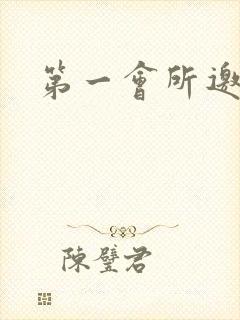 第一會所邀
陳璧君